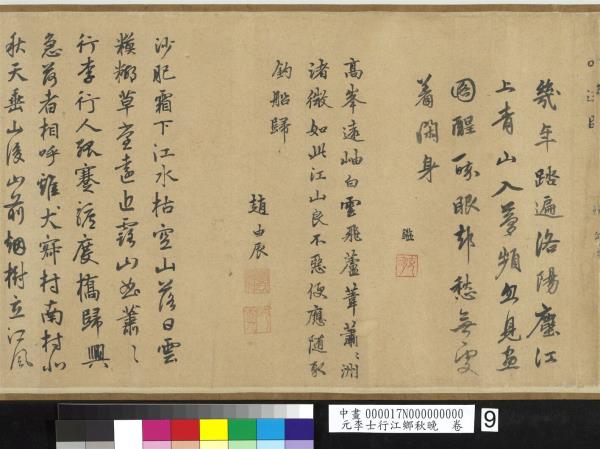 幾年踏遍洛陽塵江
上青山入夢頻忽見畫
圖醒醉眼却愁無處
着閑身
鑑
高峯遠岫白雲飛蘆葦蕭〻洲
渚微如此江山良不惡便應隨取
釣船歸
趙由辰
沙肥霜下江水枯空山落日雲
模糊草堂遠近露山出蕭〻
行李行人孤蹇驢度橋歸興
急荷者相呼雞犬寂村南村北
秋天垂山後山前烟樹立江風
中畫 000017N000000000
元李士行江鄉秋晚 卷
9